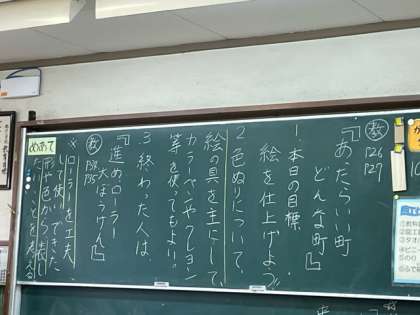 教
P26
P27
『あたらしい町
どんな町』
1. 本日の目標
絵を仕上げよう
2 色ぬりについて、
絵の具を主にして、
カラーペンやクレヨン
等を使ってもよい。
3. 終わった人は
教
P34
P35
『進めローラー
大ぼうけん』
めあて
※ローラーを工夫
して使い、できた
形や色から表し
たいことを考える